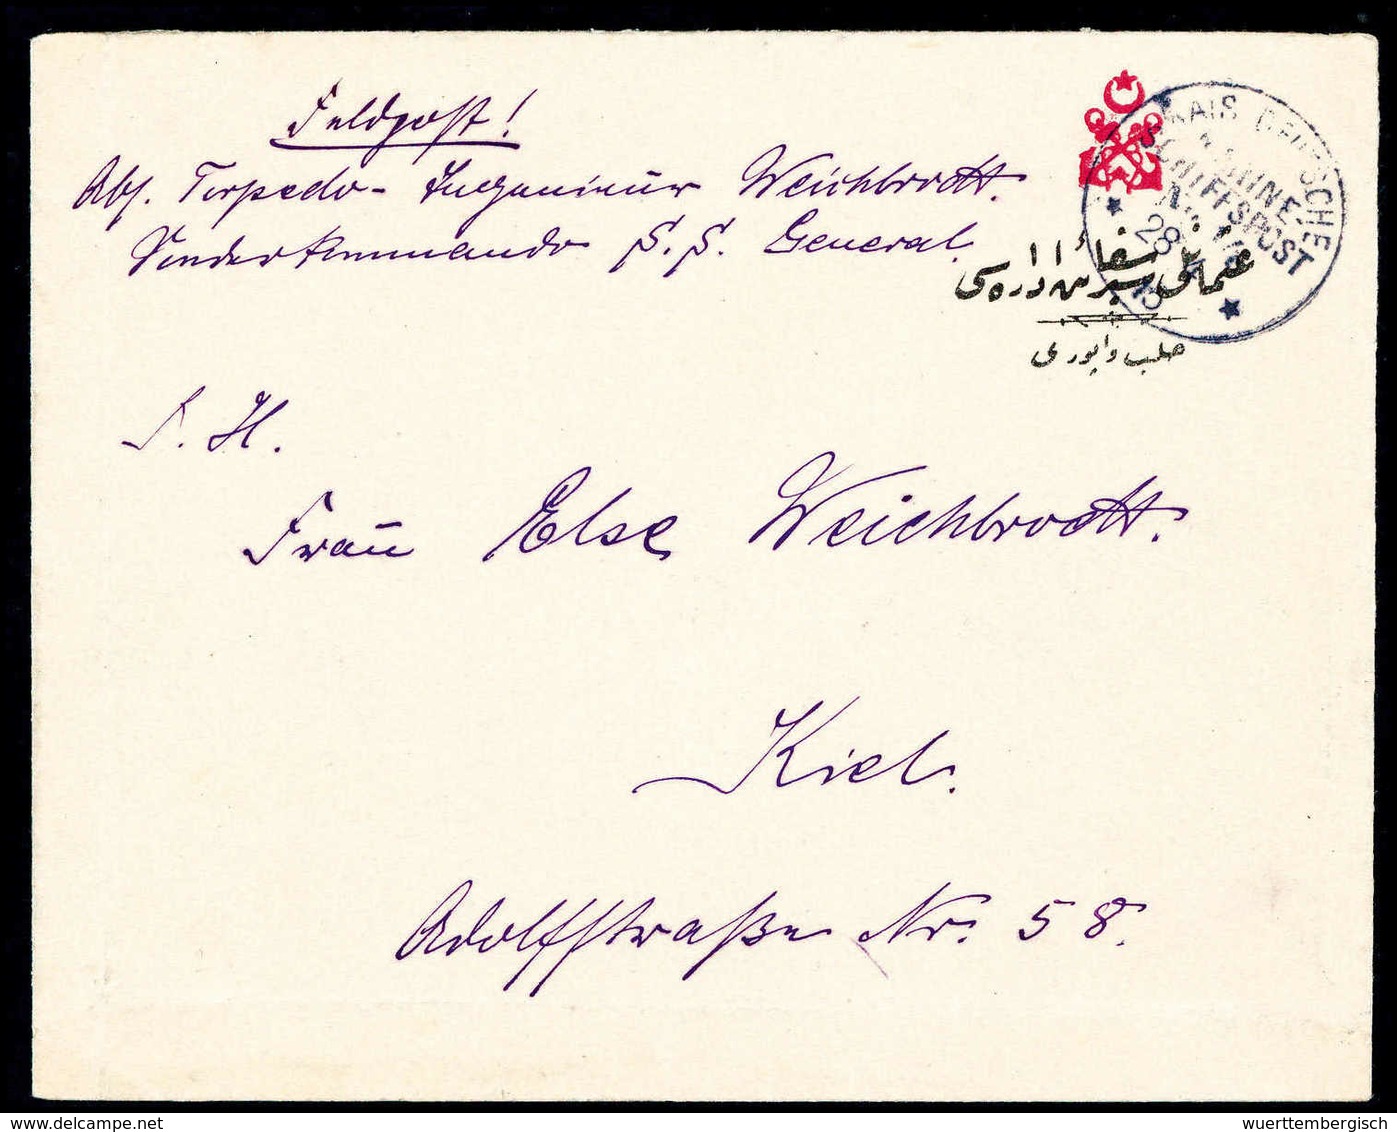 Feldpost!
Abs. Torpedo-Ingenieur Weichbrodt.
Sonderkommando S.S. General.
KAIS. DEUTSCHE
MARINE-
SCHIFFSPOST
28
عثمانلی سفائن اداره سی
حلب واپوری
S. H.
Frau Else Weichbrodt.
Kiel.
Adolfstraße Nr. 58.
wuerttembergisch